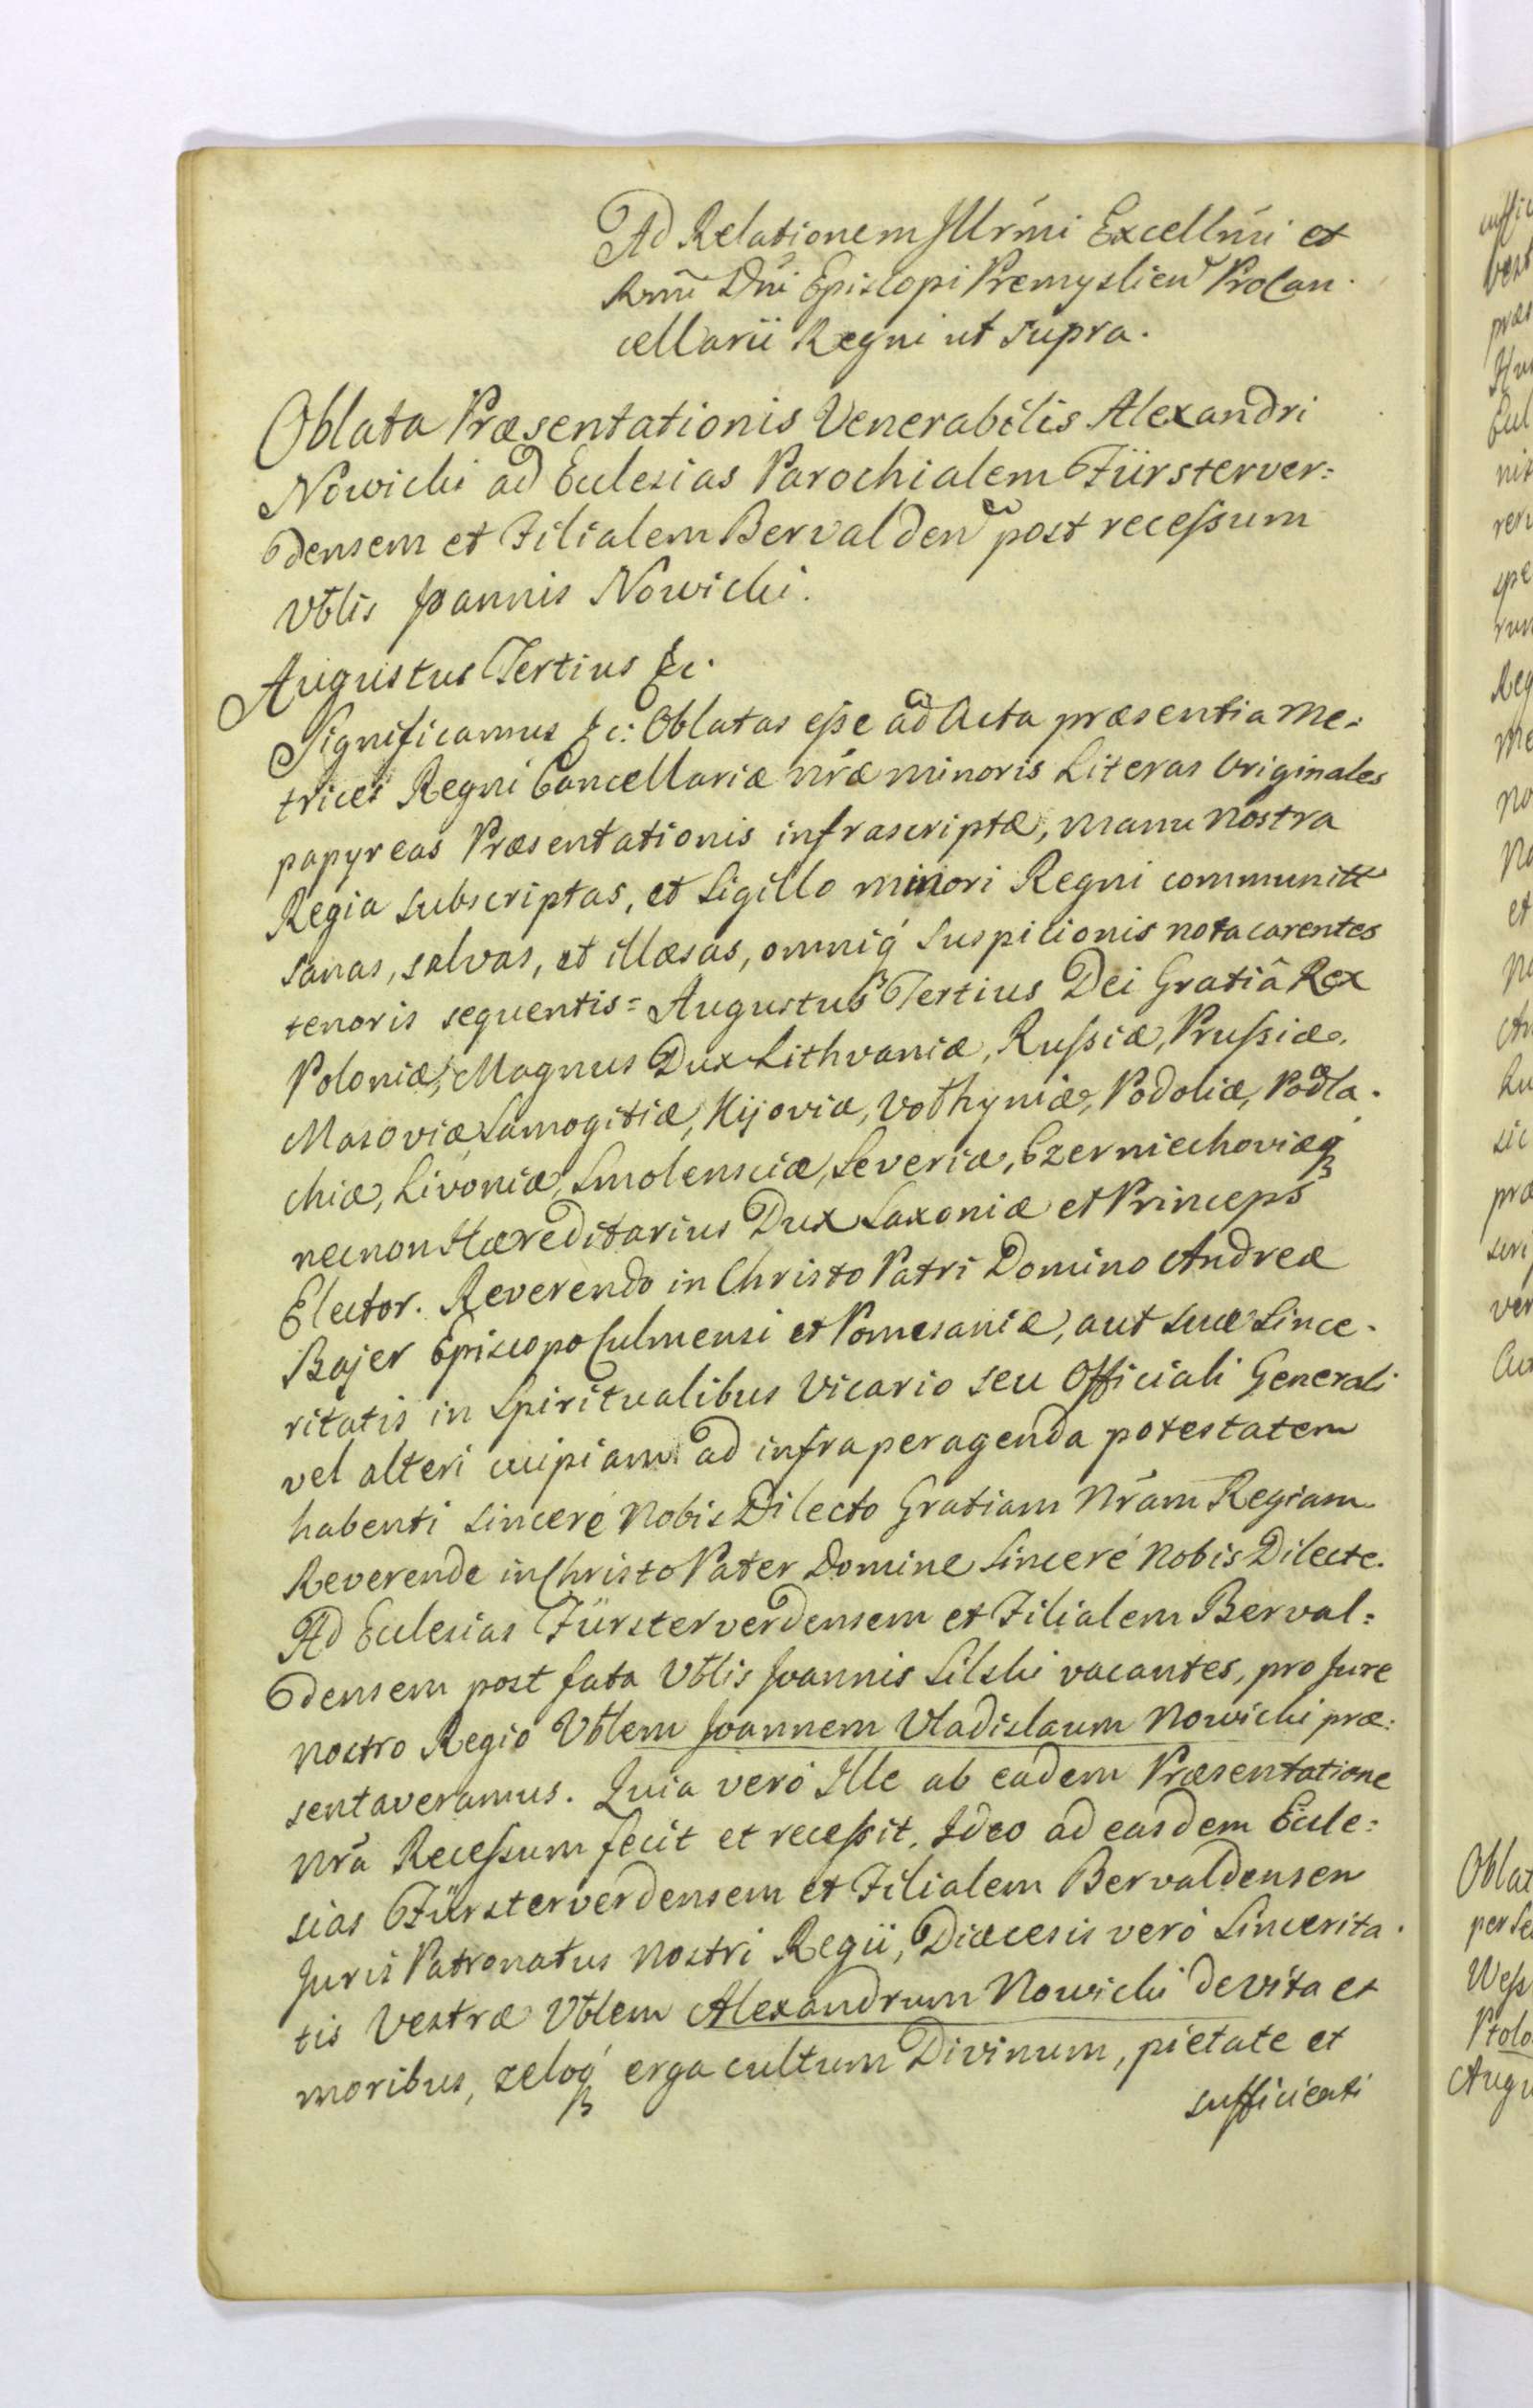 Ad Relationem Jllrmi Excellmi et
Rmi Dni Episcopi Premyslien Procan.
cellarii Regni ut supra.
Oblata Præsentationis Venerabilis Alexandri
Nowicki ad Ecclesias Parochialem Fürsterver=
densem et Filialem Bervalden post recessum
Vblis Joannis Nowicki.
Augustus Tertius &c.
Significamus &c: Oblatas esse ad Acta præsentia Me=
trices Regni Cancellariæ nræ minoris Literas Originales
papyreas Præsentationis infrascriptæ, manu nostra
Regia subscriptas, et Sigillo minori Regni communitt
sanas, salvas, et illæsas, omniq́ Suspicionis nota carentes
tenoris sequentis= Augustus Tertius Dei Gratiâ Rex
Poloniæ, Magnus Dux Lithvaniæ, Russiæ, Prussiæ,
Masoviæ Samogitiæ, Kijoviæ, Volhyniæ, Podoliæ, Podla.
chiæ, Livoniæ, Smolensciæ, Severiæ, Czerniechoviæq́
necnon Hæreditarius Dux Saxoniæ et Princeps
Elector. Reverendo in Christo Patri Domino Andreæ
Bajer Episcopo Culmensi et Pomesaniæ, aut suæ Since.
ritatis in Spiritualibus Vicario seu Officiali Generali
vel alteri cuipiam ad infra peragenda potestatem
habenti sinceré Nobis Dilecto Gratiam Nram Regiam.
Reverende in Christo Pater Domine Sinceré Nobis Dilecte.
Ad Ecclesias Fürsterverdensem et Filialem Berval=
densem post fata Vblis Joannis Silski vacantes, pro Jure
nostro Regio Vblem Joannem Vladislaum Nowicki præ=
sentaveramus. Quia veró Jlle ab eadem Præsentatione
Nrâ Recessum fecit et recessit. Jdeo ad easdem Eccle=
sias Fürsterverdensem et Filialem Bervaldensen
Juris Patronatus Nostri Regii, Diæcesis veró Sincerita.
tis Vestræ Vblem Alexandrum Nowicki de vita et
moribus, zeloq́ erga cultum Divinum, pietate et
sufficienti